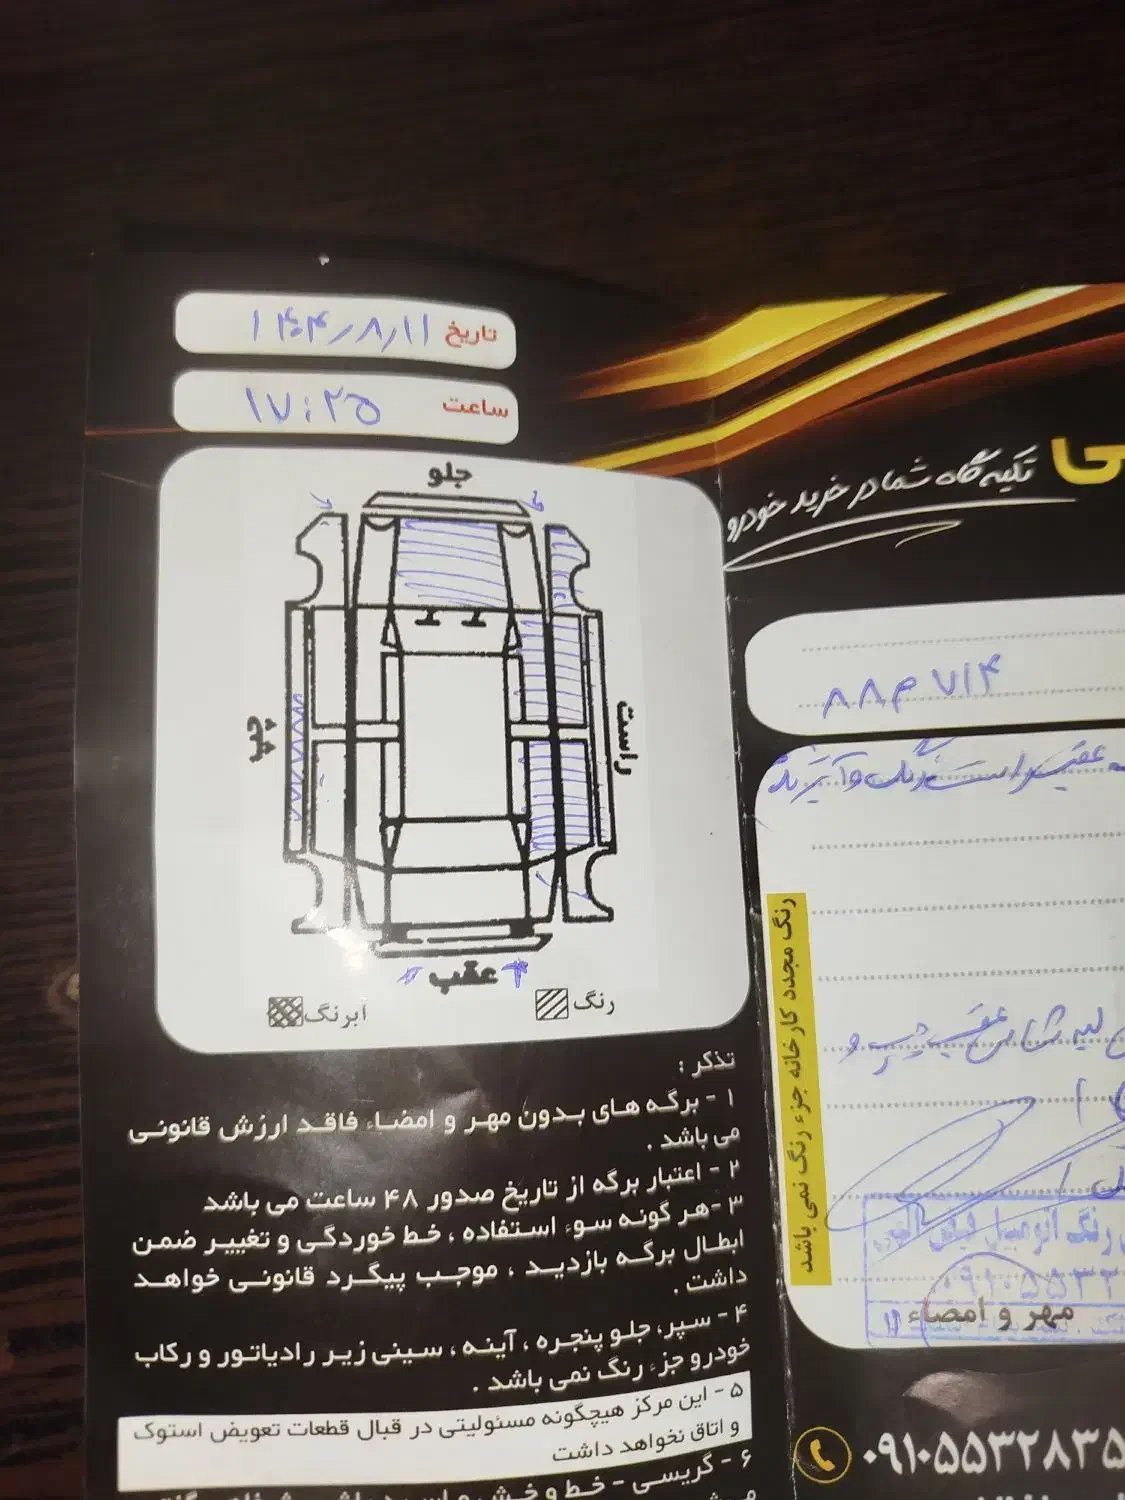 تاریخ ۱۴۰۴/۸/۱۱
ساعت ۱۷:۲۵
جلو
چپ
راست
عقب
رنگ
ابرنگ
تذکر :
۱ - برگه های بدون مهر و امضاء فاقد ارزش قانونی
می باشد .
۲ - اعتبار برگه از تاریخ صدور ۴۸ ساعت می باشد
۳ -هر گونه سوء استفاده ، خط خوردگی و تغییر ضمن
ابطال برگه بازدید ، موجب پیگرد قانونی خواهد
داشت .
۴ - سپر، جلو پنجره ، آینه ، سینی زیر رادیاتور و رکاب
خودرو جزء رنگ نمی باشد .
۵ - این مرکز هیچگونه مسئولیتی در قبال قطعات تعویض استوک
و اتاق نخواهد داشت
۶ - گریسی - خط و خش و
تکیه گاه شما در خرید خودرو
۸۸م۷۱۴
عقب راست رنگ و
عقب چپ و
رنگ مجدد کارخانه جزء رنگ نمی باشد
رنگ اتومبیل
۰۹۱۰۵۵۳۲
مهر و امضاء
۰۹۱۰۵۵۳۲۸۳۵